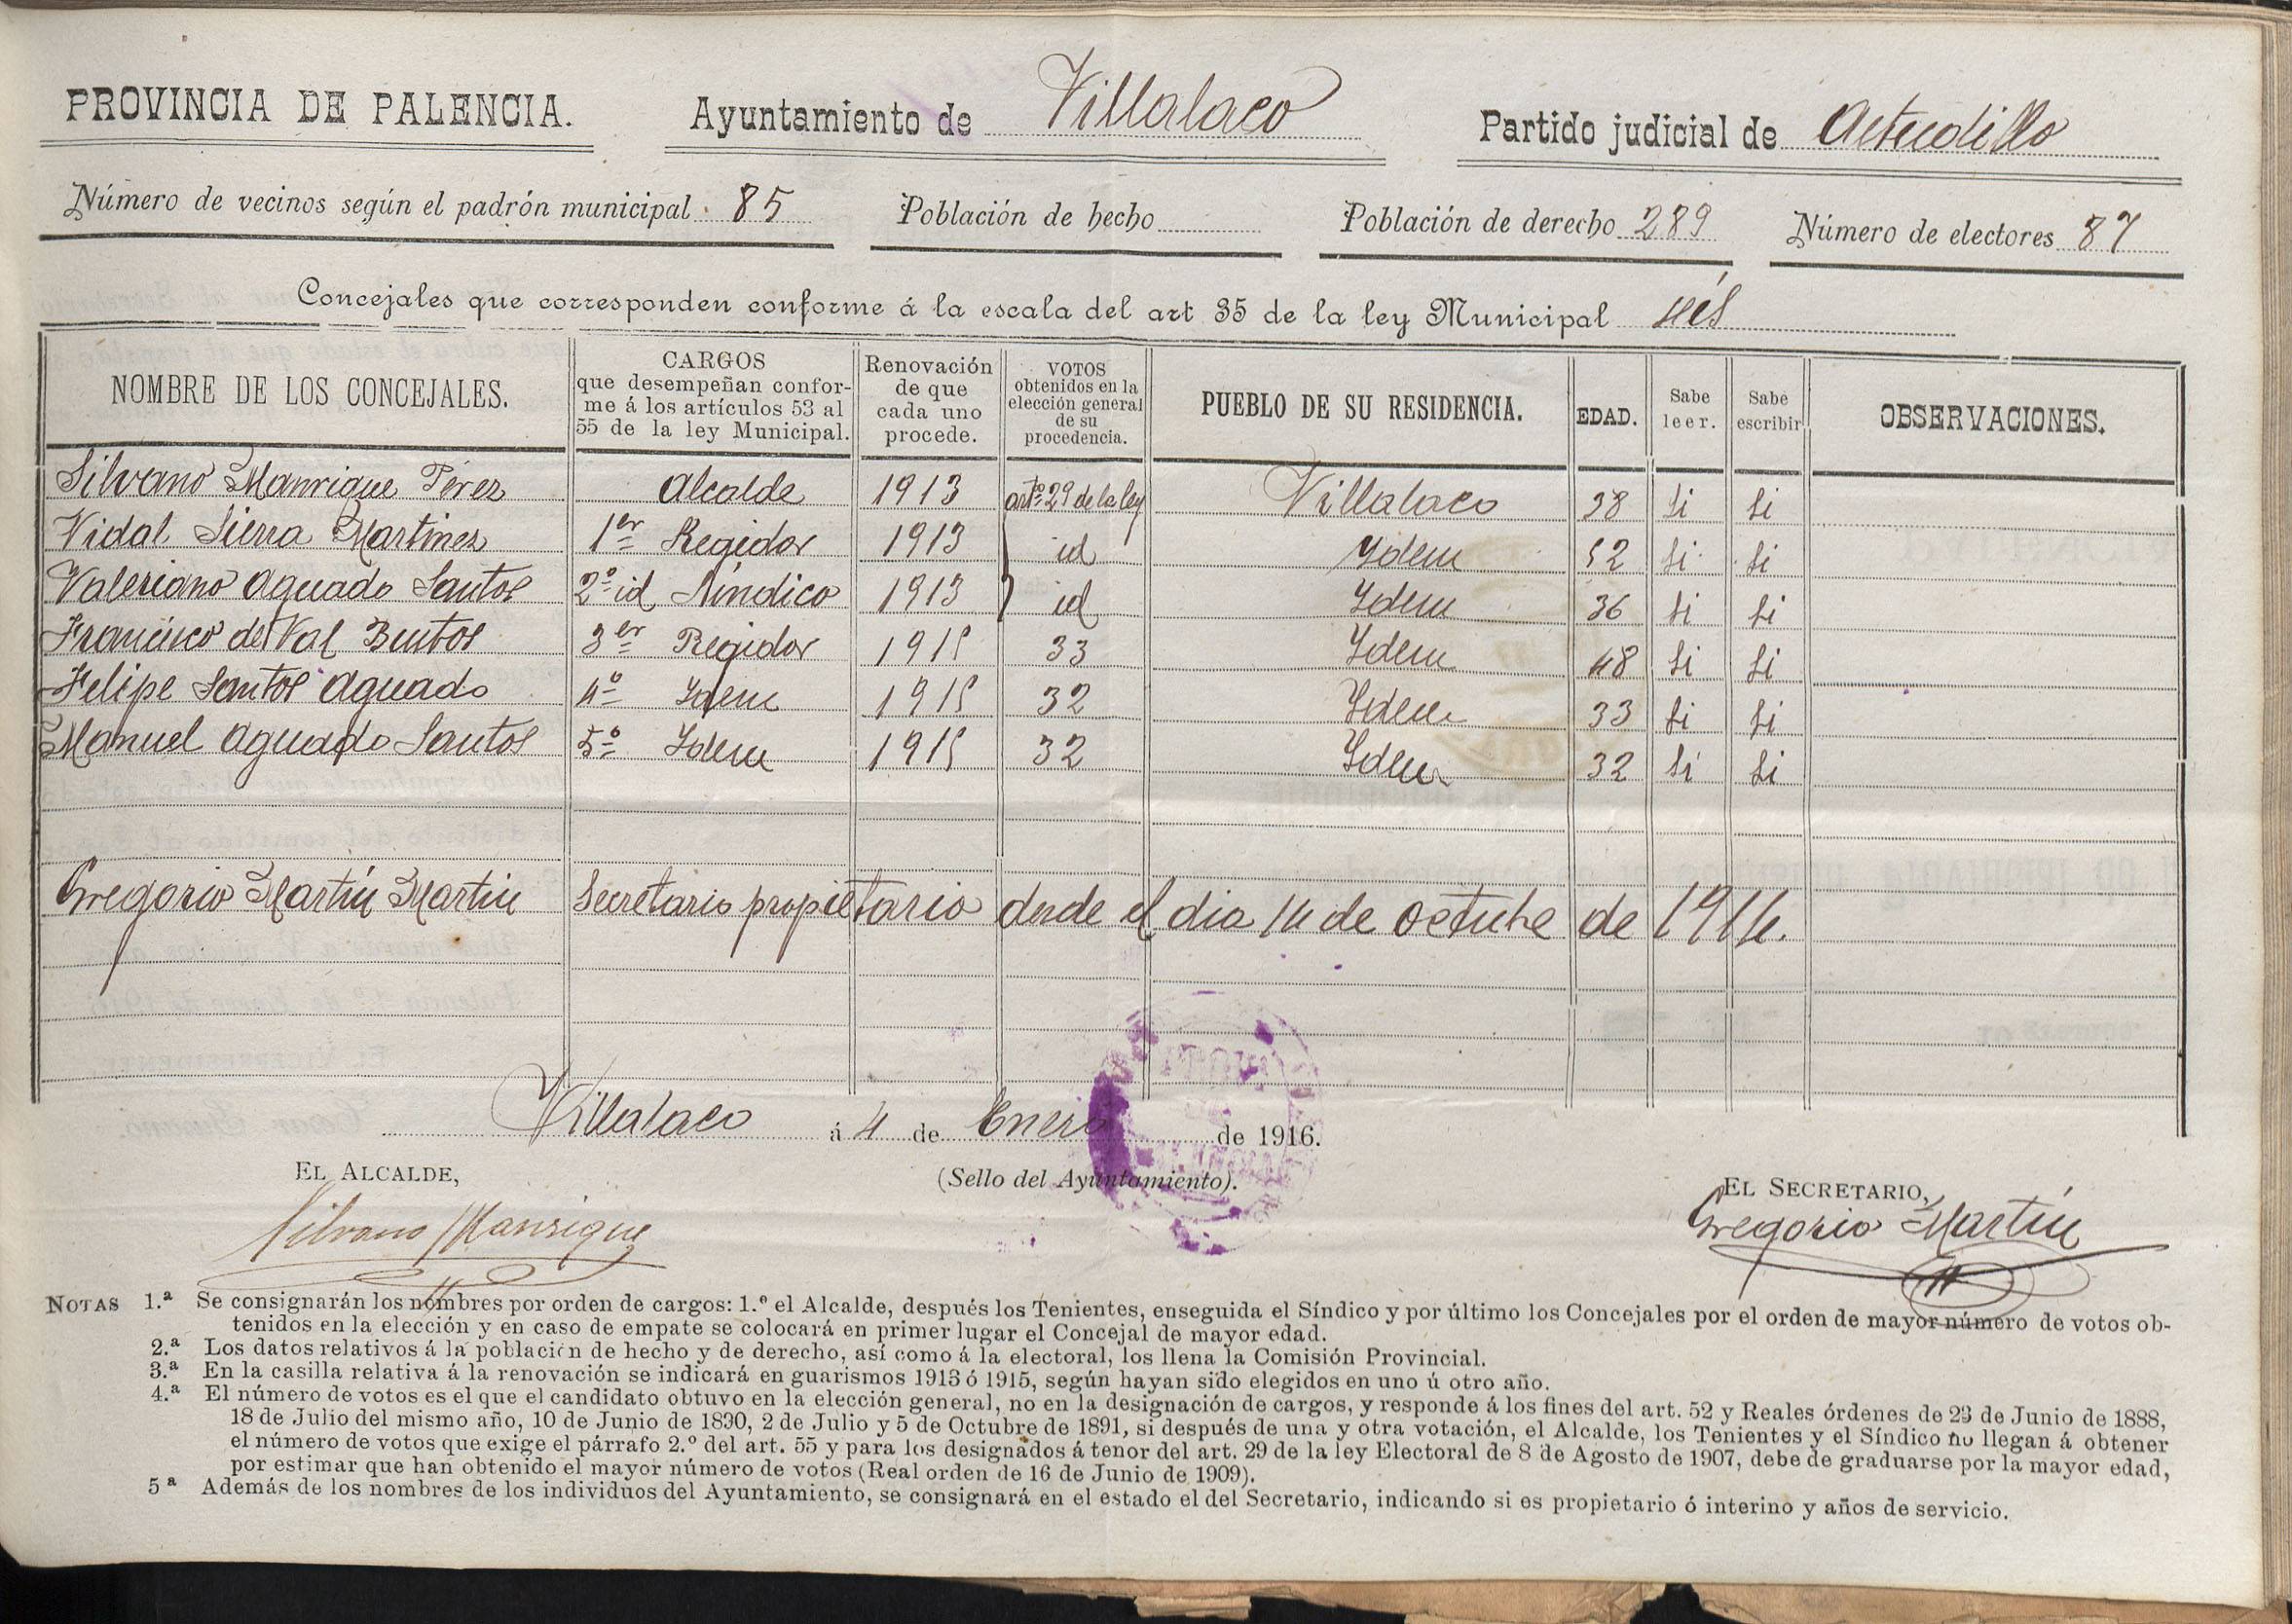 PROVINCIA DE PALENCIA. Ayuntamiento de Villalaco Partido judicial de Astudillo
Número de vecinos según el padrón municipal 85 Población de hecho Población de derecho 289 Número de electores 87
Concejales que corresponden conforme á la escala del art 35 de la ley Municipal séis
NOMBRE DE LOS CONCEJALES. CARGOS que desempeñan conforme á los artículos 53 al 55 de la ley Municipal. Renovación de que cada uno procede. VOTOS obtenidos en la elección general de su procedencia. PUEBLO DE SU RESIDENCIA. EDAD. Sabe leer. Sabe escribir OBSERVACIONES.
Silvano Manrique Pérez Alcalde 1913 artº 29 de la ley Villalaco 38 Si Si
Vidal Sierra Martinez 1er Regidor 1913 id Ydem 52 Si Si
Valeriano Aguado Santos 2º id Síndico 1913 id Ydem 36 Si Si
Francisco del Val Bustos 3er Regidor 1915 33 Ydem 48 Si Si
Felipe Santos Aguado 4º Ydem 1915 32 Ydem 33 Si Si
Manuel Aguado Santos 5º Ydem 1915 32 Ydem 32 Si Si
Gregorio Martín Martin Secretario propietario desde el dia 14 de Octubre de 1914.
Villalaco á 4 de Enero de 1916.
EL ALCALDE, (Sello del Ayuntamiento). EL SECRETARIO,
Silvano Manrique Gregorio Martín
NOTAS 1.ª Se consignarán los nombres por orden de cargos: 1.º el Alcalde, después los Tenientes, enseguida el Síndico y por último los Concejales por el orden de mayor número de votos ob-
tenidos en la elección y en caso de empate se colocará en primer lugar el Concejal de mayor edad.
2.ª Los datos relativos á la población de hecho y de derecho, así como á la electoral, los llena la Comisión Provincial.
3.ª En la casilla relativa á la renovación se indicará en guarismos 1913 ó 1915, según hayan sido elegidos en uno ú otro año.
4.ª El número de votos es el que el candidato obtuvo en la elección general, no en la designación de cargos, y responde á los fines del art. 52 y Reales órdenes de 23 de Junio de 1888,
18 de Julio del mismo año, 10 de Junio de 1890, 2 de Julio y 5 de Octubre de 1891, si después de una y otra votación, el Alcalde, los Tenientes y el Síndico no llegan á obtener
el número de votos que exige el párrafo 2.º del art. 55 y para los designados á tenor del art. 29 de la ley Electoral de 8 de Agosto de 1907, debe de graduarse por la mayor edad,
por estimar que han obtenido el mayor número de votos (Real orden de 16 de Junio de 1909).
5ª Además de los nombres de los individuos del Ayuntamiento, se consignará en el estado el del Secretario, indicando si es propietario ó interino y años de servicio.